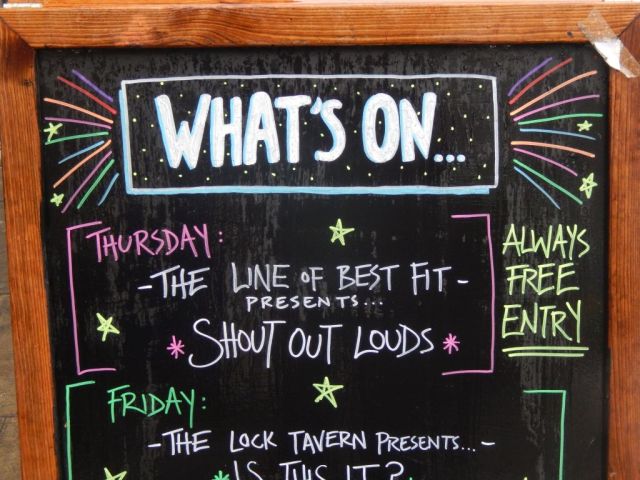 WHAT'S ON...
THURSDAY:
-THE LINE OF BEST FIT-
PRESENTS...
*SHOUT OUT LOUDS*
ALWAYS
FREE
ENTRY
FRIDAY:
-THE LOCK TAVERN PRESENTS...-
*IS THIS IT?*